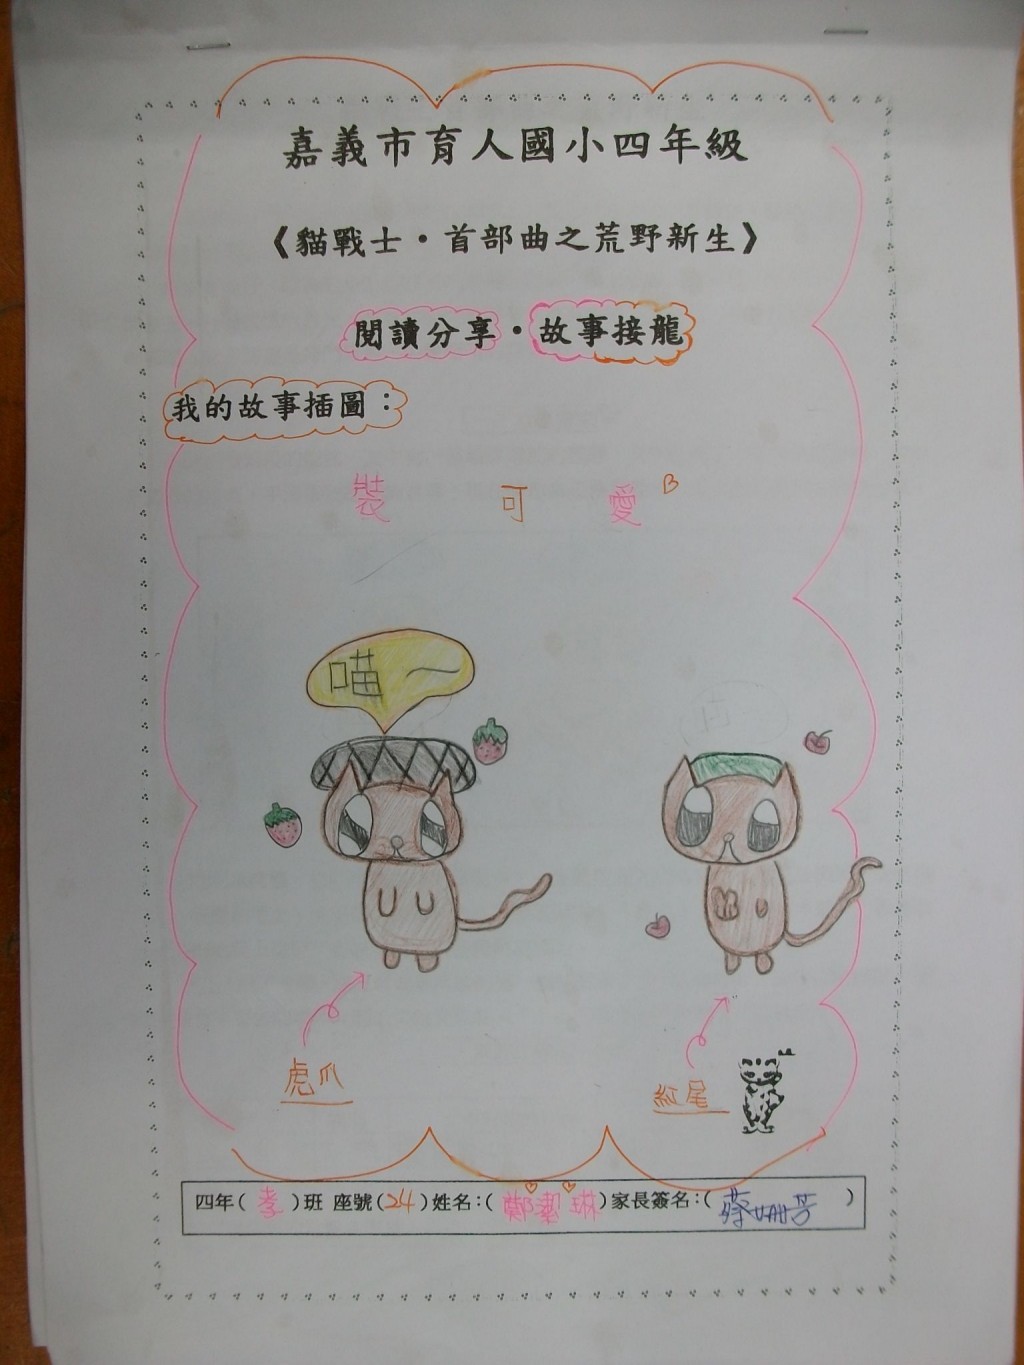 嘉義市育人國小四年級
《貓戰士・首部曲之荒野新生》
閱讀分享・故事接龍
我的故事插圖：
裝可愛
喵～
虎爪
紅尾
四年(孝)班 座號(24)姓名:(鄭潔琳)家長簽名:(蔡姍芳)